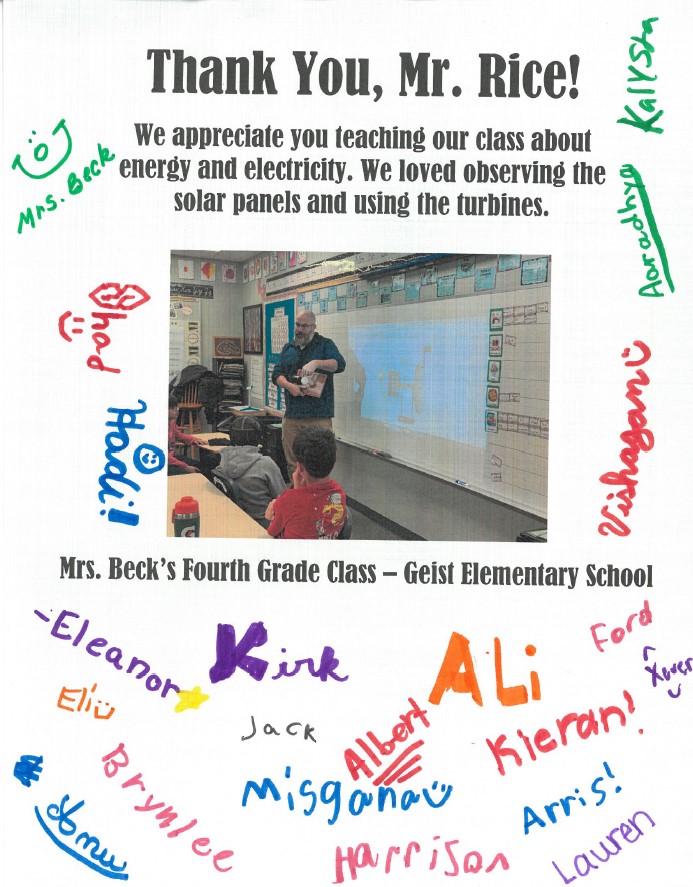 Thank You, Mr. Rice!
We appreciate you teaching our class about
energy and electricity. We loved observing the
solar panels and using the turbines.
Kalysta
Mrs. Beck
Aaradhya
Hadi!
Vishagan
Mrs. Beck's Fourth Grade Class – Geist Elementary School
-Eleanor
Kirk
Ali
Ford
Xaver
Eli
Jack
Albert
Kieran!
Brynlee
Misgana
Arris!
Harrison
Lauren